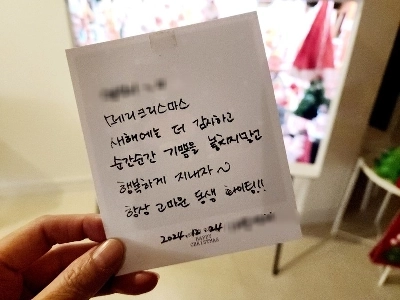 메리크리스마스
새해에는 더 감사하고
순간순간 기쁨을 놓치지말고
행복하게 지내자~
항상 고마운 동생 화이팅!!
2024.12.24
HAPPY
CHRISTMAS